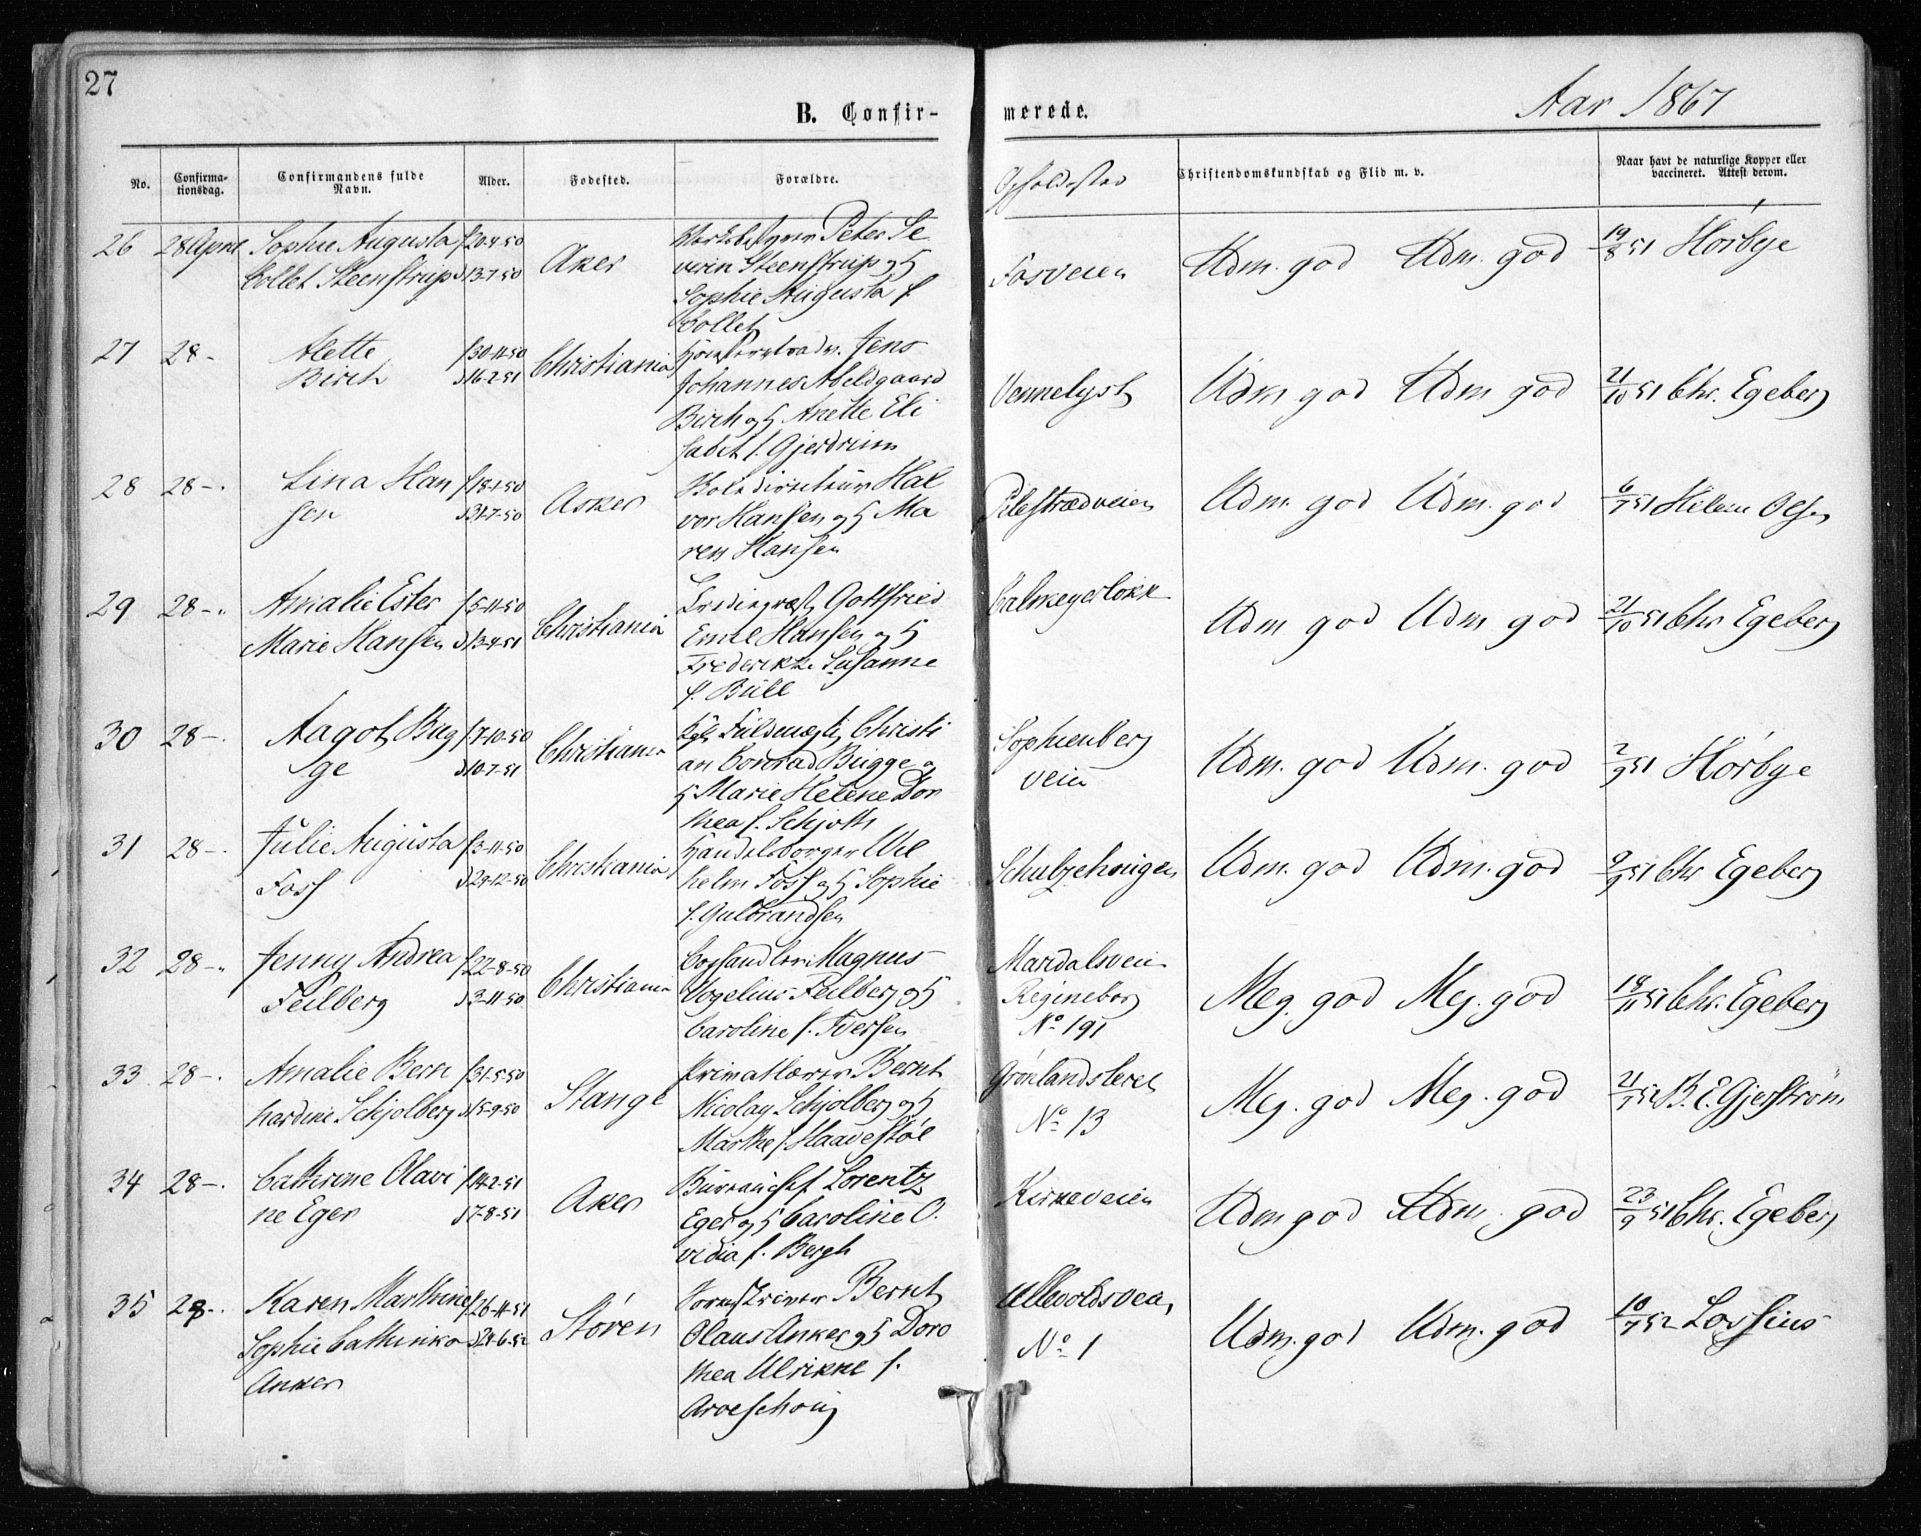 27
B. Confir-
merede.
Aar 1867
No.
Confirma-
tionsdag.
Confirmandens fulde
Navn.
Alder.
Fødested.
Forældre.
Opholdssted
Christendomskundskab og Flid m. v.
Naar havt de naturlige Kopper eller
vaccineret. Attest derom.
26 28 April Sophie Augusta f 20-4-50 Aker Peter Se
Collet Steenstrup d 13-7-50 verin Steenstrup og H
Sophie Augusta f.
Collet
Fosveien Udm. god Udm. god 19/8 51 Hørbye
27 28 - Alette f 30-11-50 Christiania Jens
Birch d 16-2-51 Johannes Abeldgaard
Birch og H Anette Eli
sabet f. Gjerdrum
Vennelyst Udm god Udm god 21/10 51 Chr. Egeberg
28 28 - Lina Han f 18-1-50 Asker Hal
sen d 31-7-50 vor Hansen og H Ma
ren Hansen
Pilestrædveien Udm. god Udm. god 6/7 51 Olsen
29 28 - Amalie Ester f 5-11-50 Christiania Gottfried
Marie Hansen d 13-4-51 Emil Hansen og H
Frederikke Susanne
f. Bull
Calmeyerløkk Udm god Udm god 21/10 51 Chr Egeberg
30 28 - Aagot Bug f 7-10-50 Christiania Kgl. Fuldmægt. Christi
ge d 10-7-51 an Conrad Bugge o
H Marie Helene Dor
thea f. Schjøth
Sophienberg
veien
Udm. god Udm. god 2/9 51 Hørbye
31 28 - Julie Augusta f 3-11-50 Christiania Handelsborger Wil
Foss d 24-12-50 helm Foss og H Sophie
f. Gulbrandsen
Schultzehougen Udm. god Udm. god 9/9 51 Chr Egeberg
32 28 - Jenny Andrea f 22-8-50 Christiania Boghandler Magnus
Feilberg d 3-11-50 Vogelius Feilberg og H
Caroline f. Iversen
Maridalsvein
Regineborg
No 191
Meg. god Meg. god 18/11 51 Chr. Egeberg
33 28 - Amalie Bern f 31-5-50 Stange Privatlærer Bernt
hardine Schjølberg d 15-9-50 Nicolay Schjølberg og H
Marthe f. Haavestøl
Grønlandsleret
No 13
Meg. god Meg. god 21/1 52 B. E. Gjerstrøm
34 28 - Cathrine Olavi f 14-2-51 Aker Büreauchef Lorentz
ne Eger d 7-8-51 Eger og H Caroline O.
vidia f. Bergh
Kirkeveien Udm god Udm. god 23/9 51 Chr. Egeberg
35 28 - Karen Marthine f 26-11-51 Støren Bernt
Sophie Cathinka d 24-6-52 Olaus Anker og H Doro
Anker thea Ulrikke f.
Aroeschoug
Ullevoldsveien
No 1
Udm. god Udm. god 10/7 52 Lossius